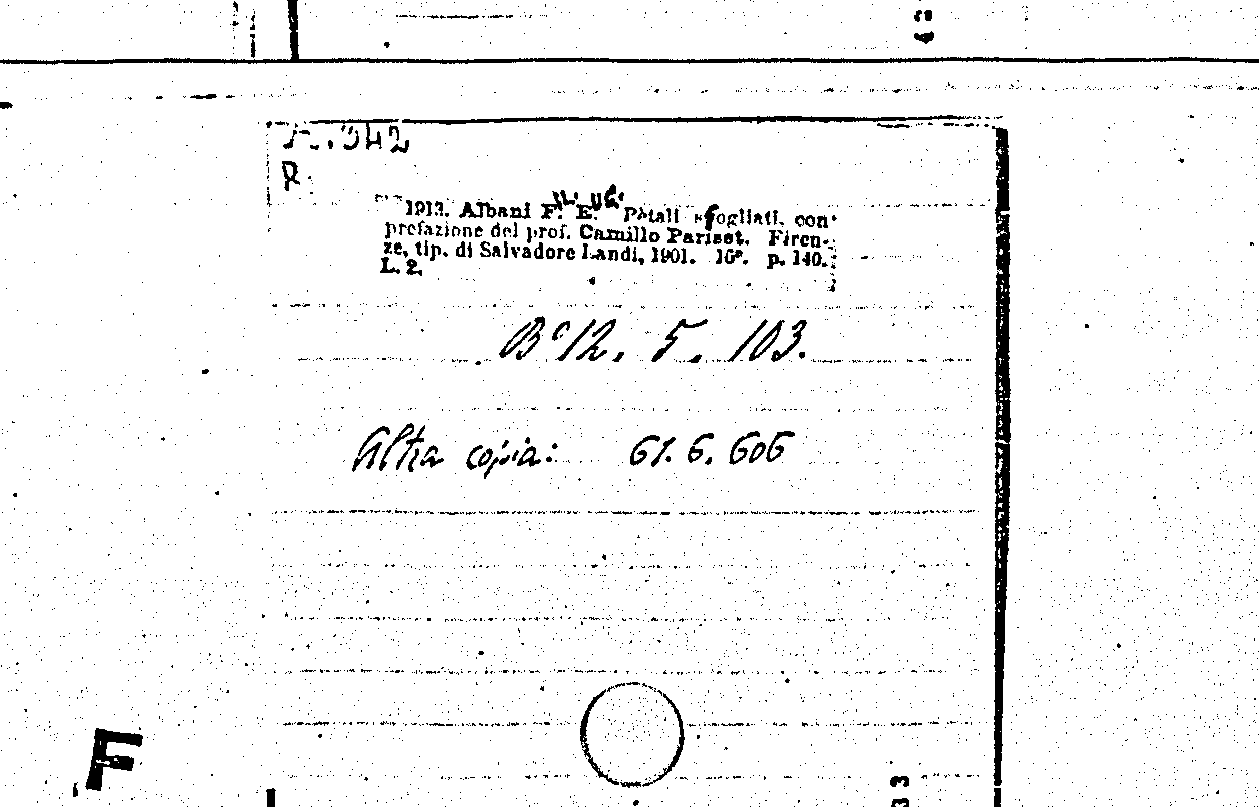 R.
1913. Albani F. E. Petali sfogliati, con
prefazione del prof. Camillo Pariset. Firen-
ze, tip. di Salvadore Landi, 1901. 16°. p. 140.
L. 2.
B° 12. 5. 103.
Altra copia: 61. 6. 606
F